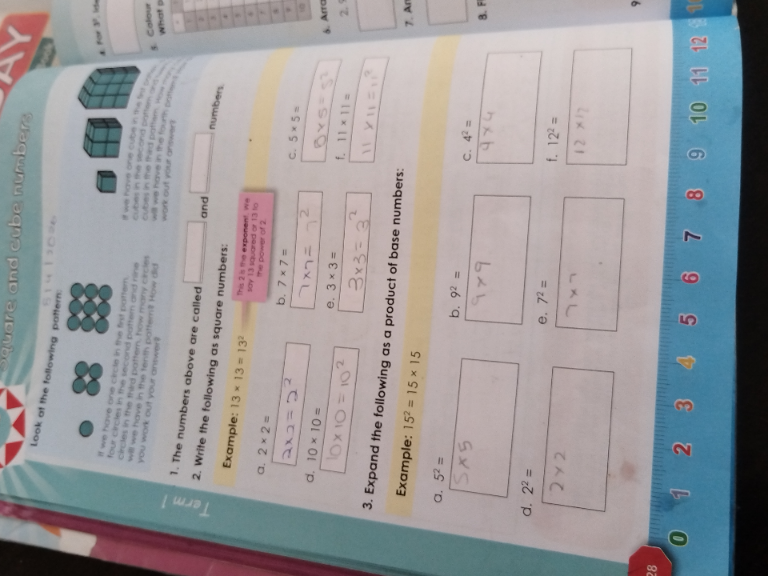 Square and cube numbers
Look at the following pattern:
If we have one circle in the first pattern,
four circles in the second pattern and nine
circles in the third pattern. How many circles
will we have in the tenth pattern? How did
you work out your answer?
If we have one cube in the first
cubes in the second pattern and
cubes in the third pattern. How many
will we have in the fourth pattern?
work out your answer?
1. The numbers above are called
and
numbers.
2. Write the following as square numbers:
Example: 13 × 13 = 13²
This 2 is the exponent. We
say 13 squared or 13 to
the power of 2.
a. 2 × 2 =
2x2=2²
b. 7 × 7 =
7x7=7²
c. 5 × 5 =
5x5=5²
d. 10 × 10 =
10x10=10²
e. 3 × 3 =
3x3=3²
f. 11 × 11 =
11x11=11²
3. Expand the following as a product of base numbers:
Example: 15² = 15 × 15
a. 5² =
5x5
b. 9² =
9x9
c. 4² =
4x4
d. 2² =
2x2
e. 7² =
7x7
f. 12² =
12x12
Term 1
28
0 1 2 3 4 5 6 7 8 9 10 11 12